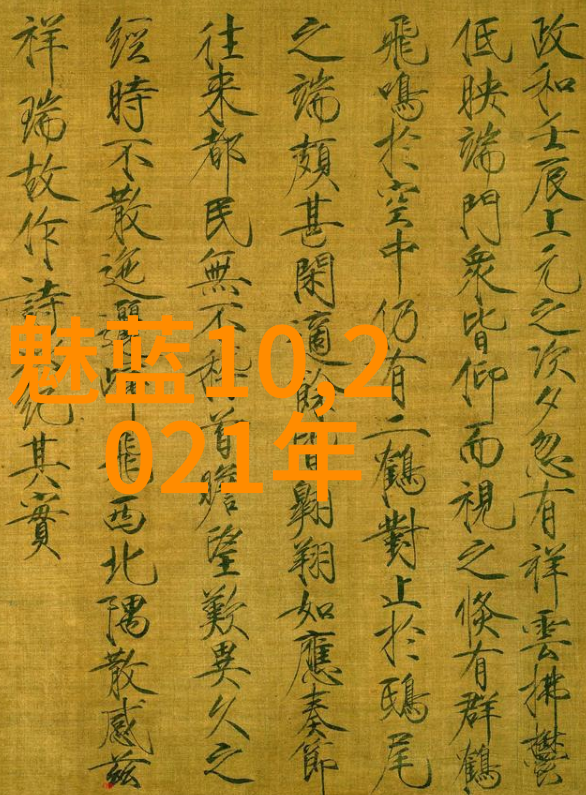 政和壬辰上元之次夕忽有祥雲拂鬱
低映端門衆皆仰而視之倏有群鶴
飛鳴於空中仍有二鶴對止於鴟尾
之端頗甚閑適餘皆翱翔如應奏節
往来都民無不稽首瞻望歎異久之
經時不散迤邐歸飛西北隅散感茲
祥瑞故作詩紀其實
魅蓝10,2
021年